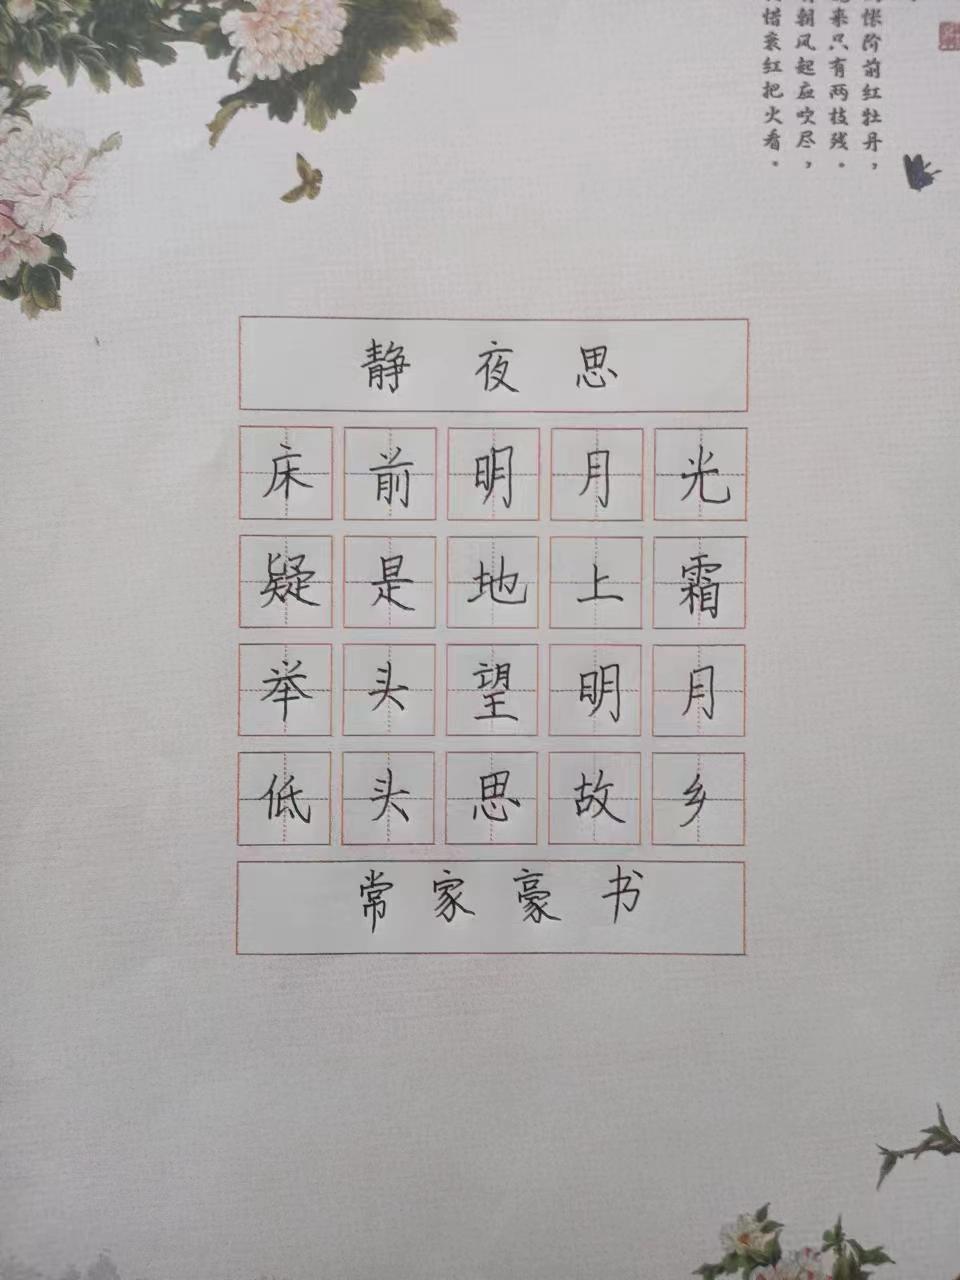 怅阶前红牡丹，
来只有两枝残。
朝风起应吹尽，
惜衰红把火看。
静夜思
床前明月光
疑是地上霜
举头望明月
低头思故乡
常家豪书